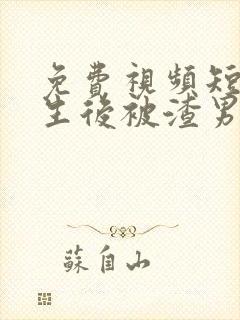 免費視頻短
生後被渣男
蘇自山